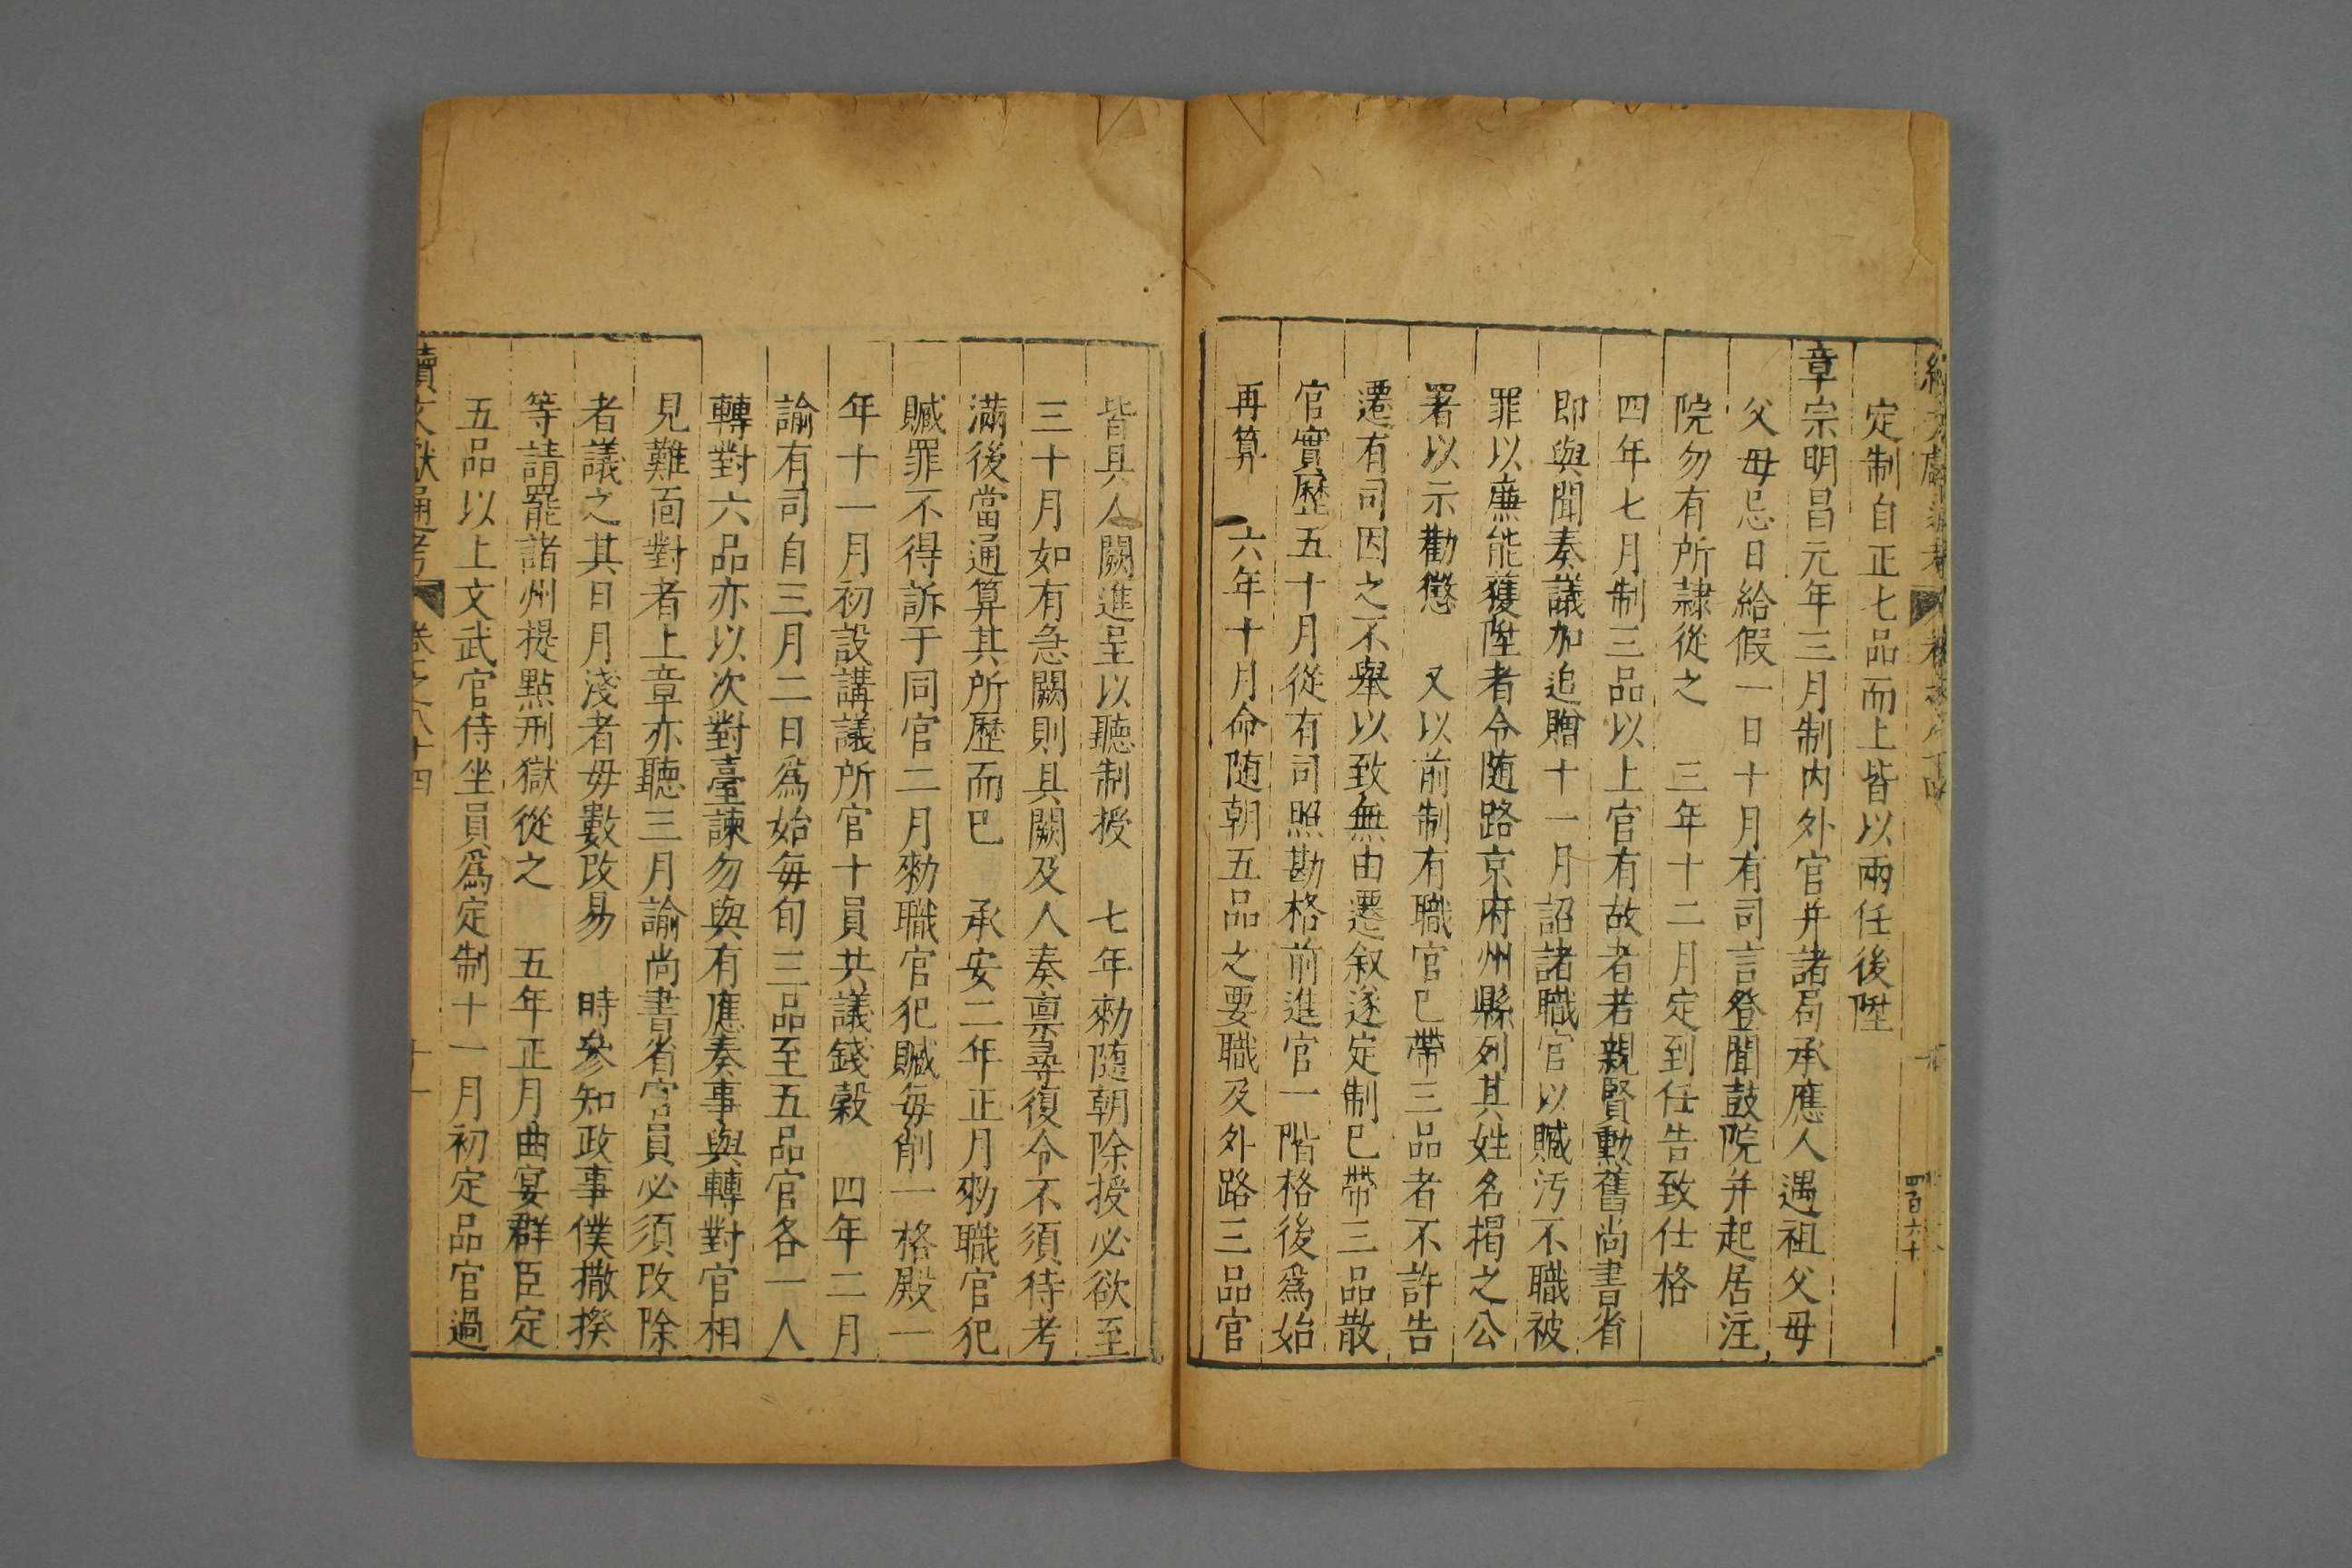 定制自正七品而上皆以兩任後陞
章宗明昌元年三月制内外官并諸局承應人遇祖父母
父母忌日給假一日十月有司言登聞鼓院并起居注
院勿有所隷從之　三年十二月定到任告致仕格
四年七月制三品以上官有故者若親賢勳舊尚書省
即與聞奏議加追贈十一月詔諸職官以贓汚不職被
罪以廉能獲陞者令随路京府州縣列其姓名揭之公
署以示勸懲　又以前制有職官已帶三品者不許告
遷有司因之不舉以致無由遷叙遂定制已帶三品散
官實歷五十月從有司照勘格前進官一階格後爲始
再算　六年十月命随朝五品之要職及外路三品官
皆具人闕進呈以聽制授　七年勑隨朝除授必欲至
三十月如有急闕則具闕及人奏禀尋復令不須待考
滿後當通算其所歷而已　承安二年正月勑職官犯
贓罪不得訴于同官二月勑職官犯贓每削一格殿一
年十一月初設講議所官十員共議錢穀　四年二月
諭有司自三月二日爲始每旬三品至五品官各一人
轉對六品亦以次對臺諫勿與有應奏事與轉對官相
見難面對者上章亦聽三月諭尚書省官員必須改除
者議之其日月淺者毋數改易　時參知政事僕撒揆
等請罷諸州提點刑獄從之　五年正月曲宴群臣定
五品以上文武官侍坐員爲定制十一月初定品官過
續文獻通考　卷之八十四　十一